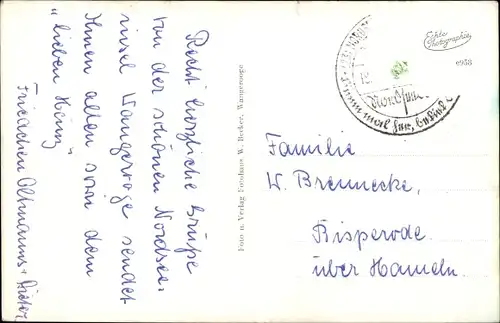 Recht herzliche Grüße
von der schönen Nordsee-
insel Wangerooge sendet
Ihnen allen sowie dem
"lieben Heinz"
Friedchen Oltmanns + Dieter
Foto u. Verlag Fotohaus W. Becker, Wangerooge
Echte
Photographie
6958
Familie
W. Brennecke,
Bisperode.
über Hameln.